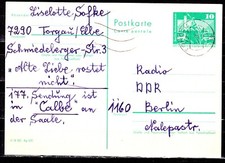 Liselotte Sofke
7290 Torgau/Elbe
Schmiedeberger-Str. 3
"Alte Liebe rostet
nicht"
177. Sendung ist
in "Calbe" an
der Saale.
Postkarte
10
Radio
DDR
1160 Berlin
Nalepastr.